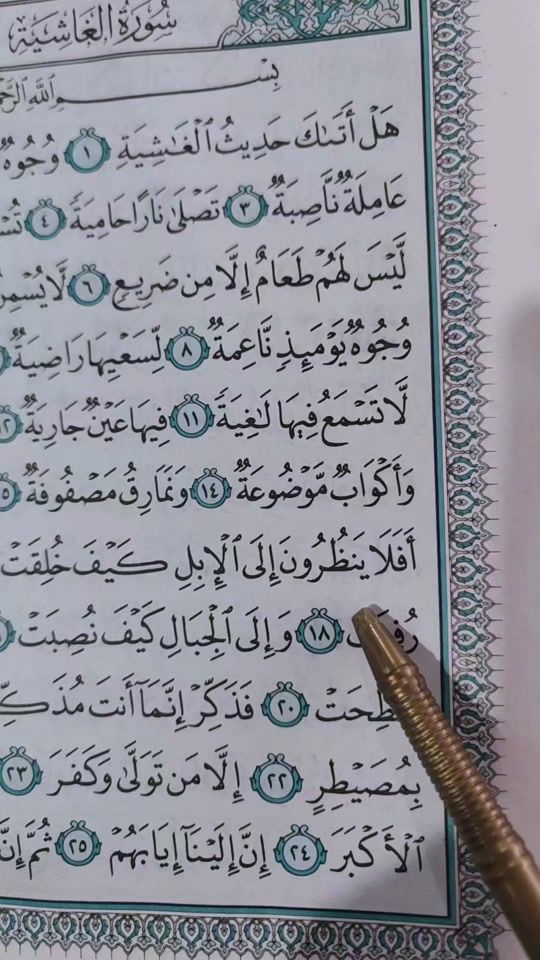 سُورَةُ الغَاشِيَةِ
بِسْمِ ٱللَّهِ
هَلْ أَتَىٰكَ حَدِيثُ ٱلْغَٰشِيَةِ ١ وُجُوهٌ
عَامِلَةٌ نَّاصِبَةٌ ٣ تَصْلَىٰ نَارًا حَامِيَةً ٤
لَّيْسَ لَهُمْ طَعَامٌ إِلَّا مِن ضَرِيعٍ ٦ لَّا
وُجُوهٌ يَوْمَئِذٍ نَّاعِمَةٌ ٨ لِّسَعْيِهَا رَاضِيَةٌ
لَّا تَسْمَعُ فِيهَا لَٰغِيَةً ١١ فِيهَا عَيْنٌ جَارِيَةٌ ١٢
وَأَكْوَابٌ مَّوْضُوعَةٌ ١٤ وَنَمَارِقُ مَصْفُوفَةٌ
أَفَلَا يَنظُرُونَ إِلَى ٱلْإِبِلِ كَيْفَ خُلِقَتْ
١٨ وَإِلَى ٱلْجِبَالِ كَيْفَ نُصِبَتْ
٢٠ فَذَكِّرْ إِنَّمَآ أَنتَ
بِمُصَيْطِرٍ ٢٢ إِلَّا مَن تَوَلَّىٰ وَكَفَرَ ٢٣
ٱلْأَكْبَرَ ٢٤ إِنَّ إِلَيْنَآ إِيَابَهُمْ ٢٥ ثُمَّ إِنَّ